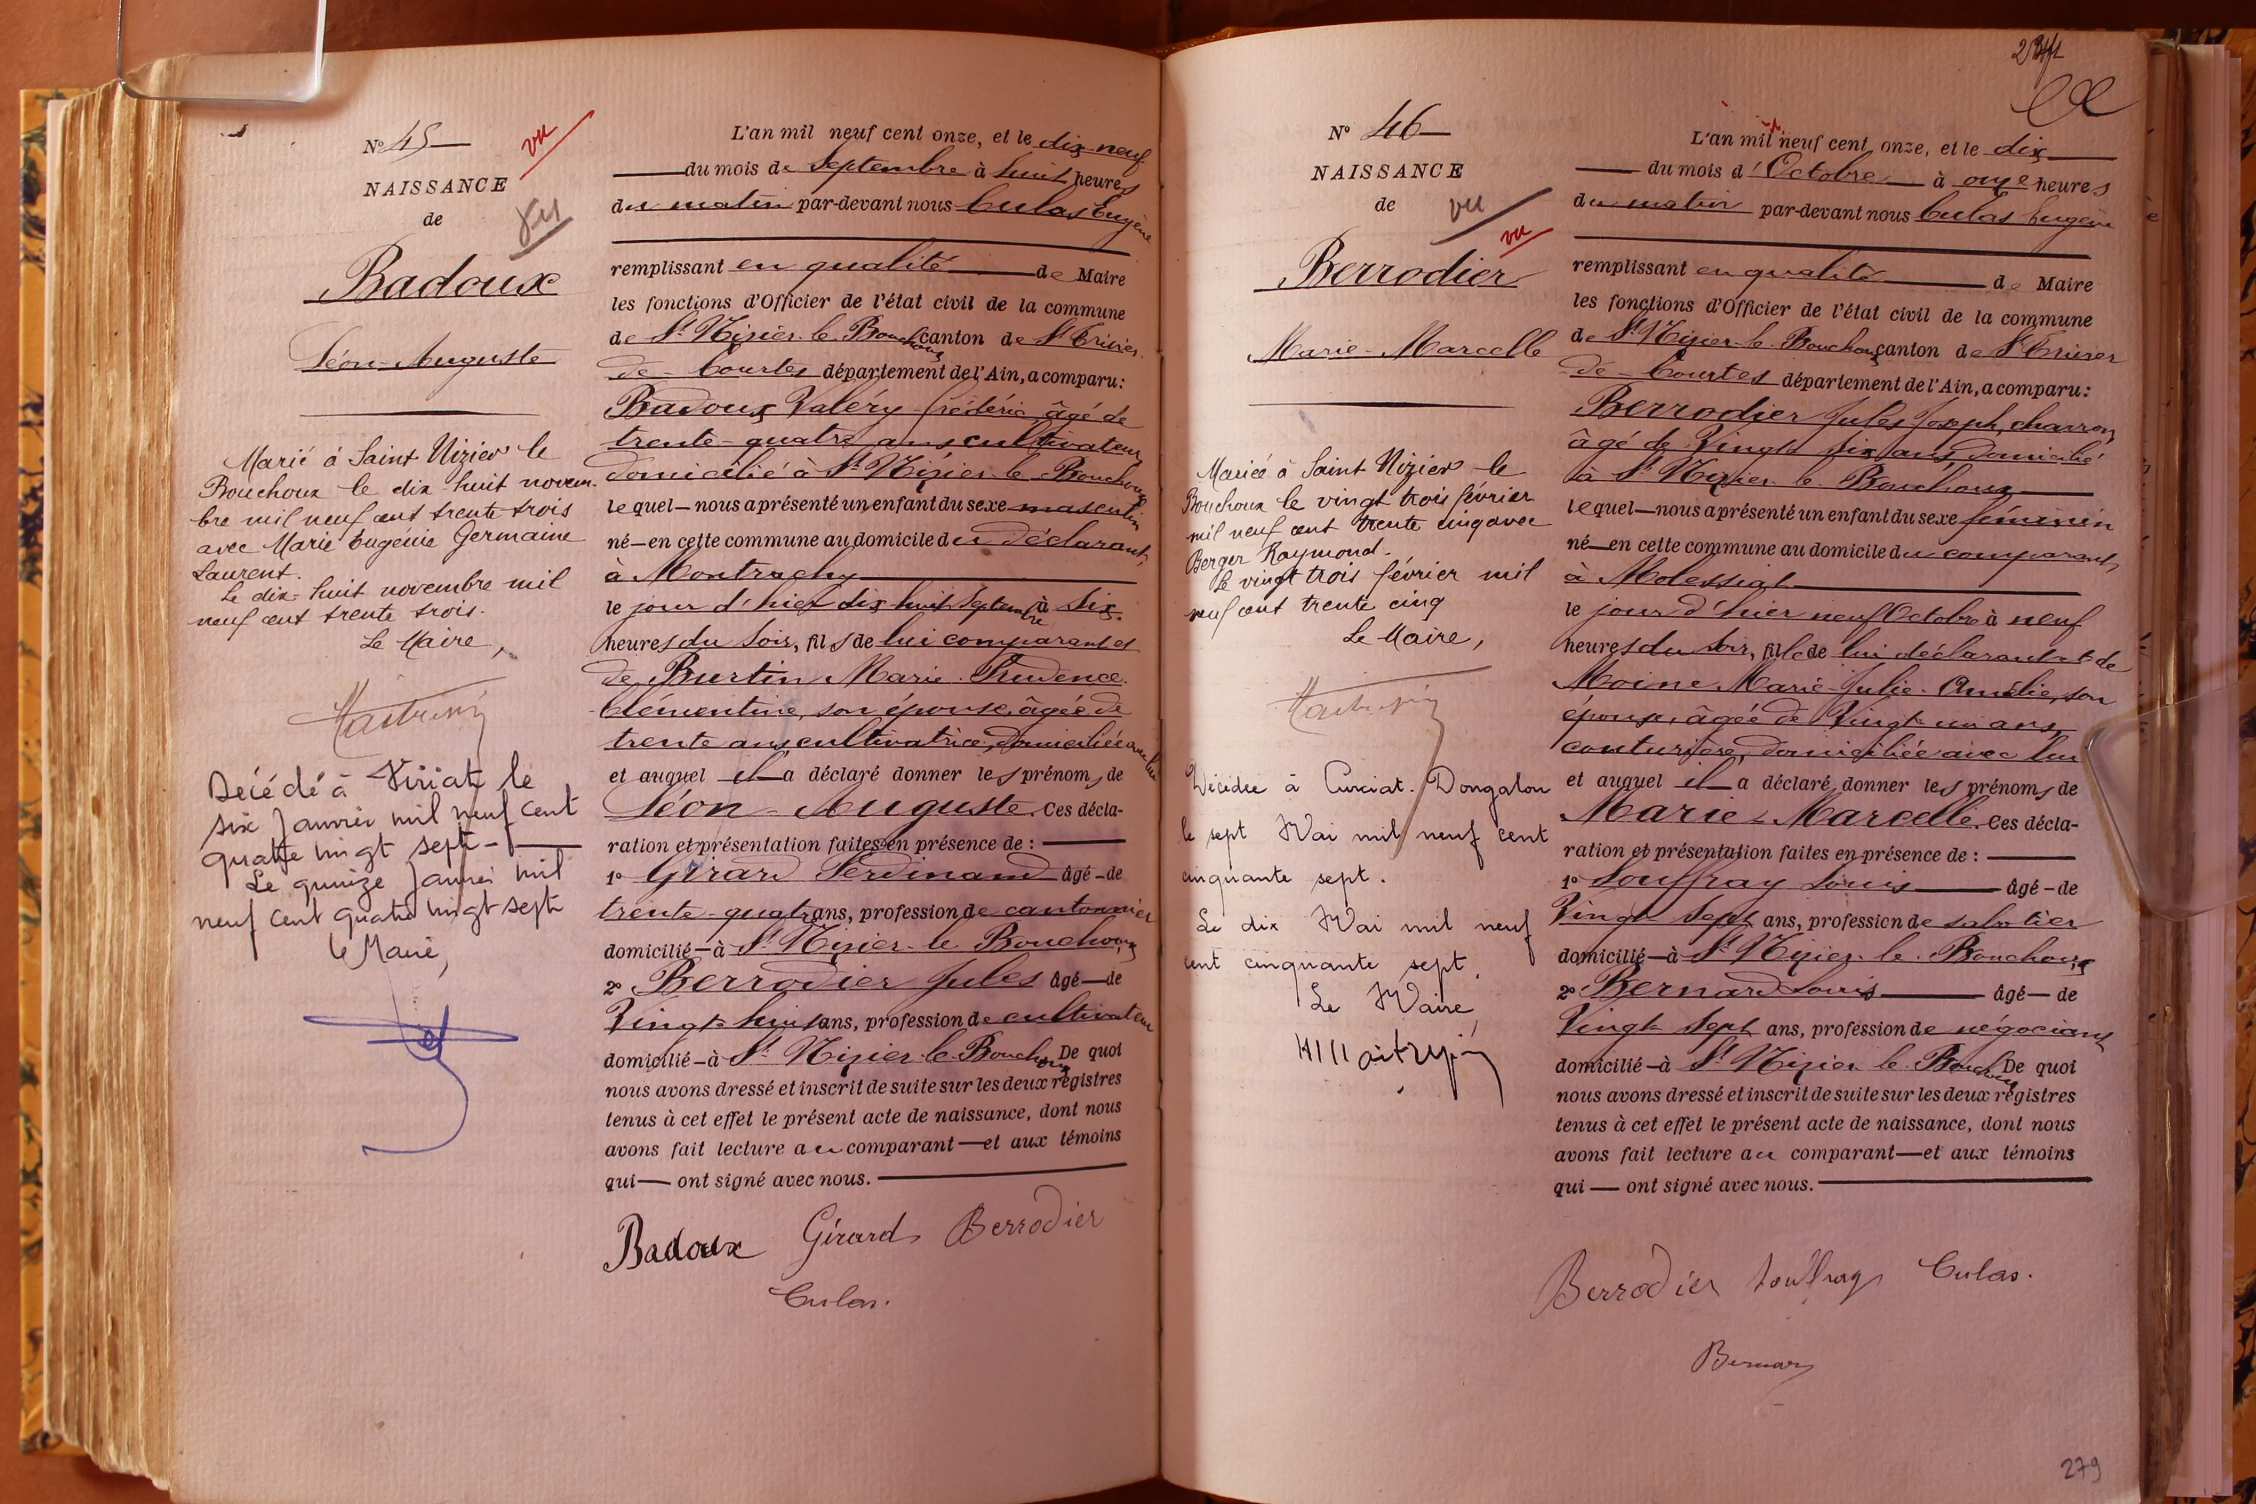 N° 45
vu
NAISSANCE
de
vu
Badoux
Léon-Auguste
Marié à Saint Nizier le
Bouchoux le dix-huit novem-
bre mil neuf cent trente trois
avec Marie Eugénie Germaine
Laurent.
Le dix-huit novembre mil
neuf cent trente trois.
Le Maire,
Décédé à Viriat le
six Janvier mil neuf cent
quatre vingt sept
Le quinze Janvier mil
neuf cent quatre vingt sept
Le Maire,
L'an mil neuf cent onze, et le dix neuf
du mois de Septembre à huit heures
du matin par-devant nous Culas Eugène
remplissant en qualité de Maire
les fonctions d'Officier de l'état civil de la commune
de St Nizier-le-Bouchoux canton de St Trivier
de-Courtes département de l'Ain, a comparu:
Badoux Valéry Frédéric âgé de
trente-quatre ans cultivateur
domicilié à St Nizier-le-Bouchoux
lequel nous a présenté un enfant du sexe masculin
né en cette commune au domicile du déclarant,
à Montrachy
le jour d'hier dix huit Septembre à Six
heures du Soir, fils de lui comparant et
de Burtin Marie-Prudence-
Clémentine, son épouse, âgée de
trente ans cultivatrice, domiciliée avec lui
et auquel il a déclaré donner les prénoms de
Léon-Auguste. Ces décla-
ration et présentation faites en présence de :
1° Girard Ferdinand âgé de
trente-quatre ans, profession de cantonnier
domicilié à St Nizier-le-Bouchoux
2° Berrodier Jules âgé de
Vingt-huit ans, profession de cultivateur
domicilié à St Nizier-le-Bouchoux De quoi
nous avons dressé et inscrit de suite sur les deux registres
tenus à cet effet le présent acte de naissance, dont nous
avons fait lecture au comparant et aux témoins
qui ont signé avec nous.
Badoux Girard Berrodier
Culas.
N° 46
NAISSANCE
de
vu
vu
Berrodier
Marie-Marcelle
Mariée à Saint Nizier le
Bouchoux le vingt trois février
mil neuf cent trente cinq avec
Berger Raymond.
Le vingt trois février mil
neuf cent trente cinq
Le Maire,
Décédée à Curciat-Dongalon
le sept Mai mil neuf cent
cinquante sept.
Le dix Mai mil neuf
cent cinquante sept.
Le Maire
L'an mil neuf cent onze, et le dix
du mois d'Octobre à onze heures
du matin par-devant nous Culas Eugène
remplissant en qualité de Maire
les fonctions d'Officier de l'état civil de la commune
de St Nizier-le-Bouchoux canton de St Trivier
de-Courtes département de l'Ain, a comparu:
Berrodier Jules Joseph, charron
âgé de Vingt Six ans, domicilié
à St Nizier-le-Bouchoux
lequel nous a présenté un enfant du sexe féminin
né en cette commune au domicile du comparant,
à Molessiat
le jour d'hier neuf Octobre à neuf
heures du Soir, fille de lui déclarant et de
Moine Marie-Julie-Amélie, son
épouse, âgée de Vingt un ans,
couturière, domiciliée avec lui
et auquel il a déclaré donner les prénoms de
Marie-Marcelle. Ces décla-
ration et présentation faites en présence de :
1° Souffray Louis âgé de
Vingt Sept ans, profession de sabotier
domicilié à St Nizier-le-Bouchoux
2° Bernard Louis âgé de
Vingt Sept ans, profession de négociant
domicilié à St Nizier-le-Bouchoux De quoi
nous avons dressé et inscrit de suite sur les deux registres
tenus à cet effet le présent acte de naissance, dont nous
avons fait lecture au comparant et aux témoins
qui ont signé avec nous.
Berrodier Souffray Culas.
Bernard
279